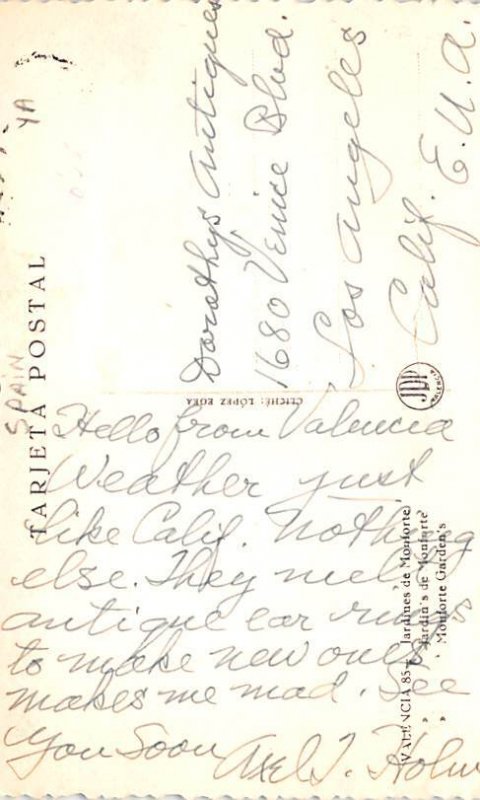 TARJETA POSTAL
SPAIN
YA
Dorothys Antiques
1680 Venice Blvd.
Los Angeles
Calif. E.U.A.
JDP
CLICHÉ: LÓPEZ EGEA
Hello from Valencia
Weather just
like Calif. Nothing
else. They melt
antique ear rings
to make new ones
makes me mad. See
You Soon
Axel T. Holm
VALENCIA 85 - Jardines de Monforte
» Jardin's de Monforte
» Monforte Garden's